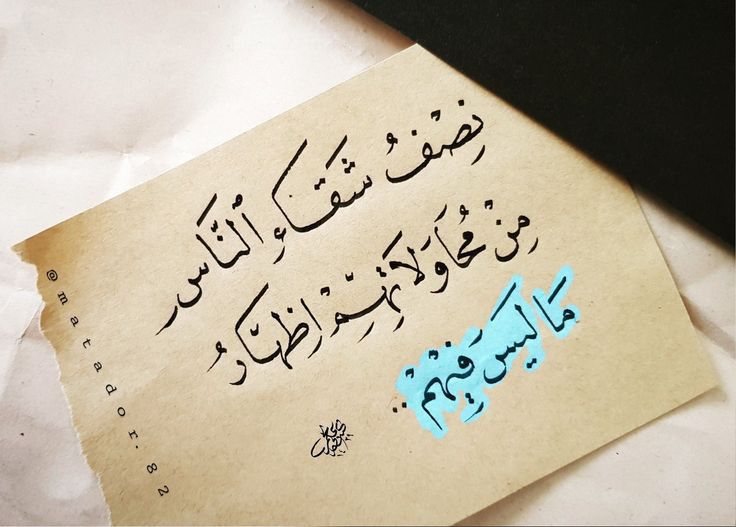 نِصْفُ شَقَاءِ ٱلنَّاسِ
مِنْ مُحَاوَلَاتِهِمْ اِظهَارُ
مَا لَيسَ فِيْهْمْ ..
@matador.82